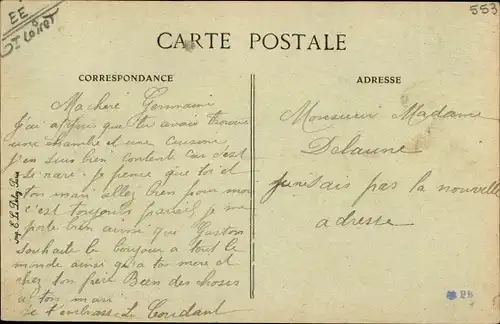 EE
553
CARTE POSTALE
CORRESPONDANCE
ADRESSE
Ma chere Germaine
J'ai appris que tu avais trouvé
une chambre et une cuisine
J'en suis bien contente car c'est
si rare je pense que toi et
ton mari allez bien pour moi
c'est toujours pareil je me
porte bien ainsi que Gaston
souhaite le bonjour a tout le
monde ainsi qu'a ta mere et
chez ton frere Bien des choses
a ton mari
Je t'embrasse
Monsieur Madame
Delaune
je ne sais pas la nouvelle
adresse
Imp. E. Le Deley, Paris